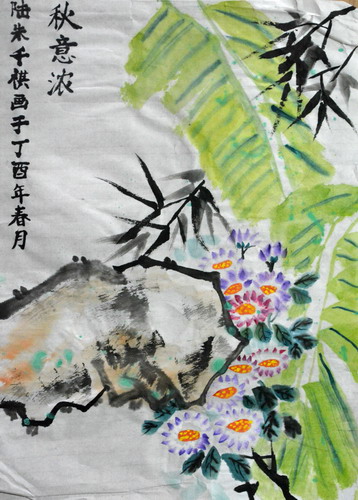 秋意浓
陆朱千棋画于丁酉年春月